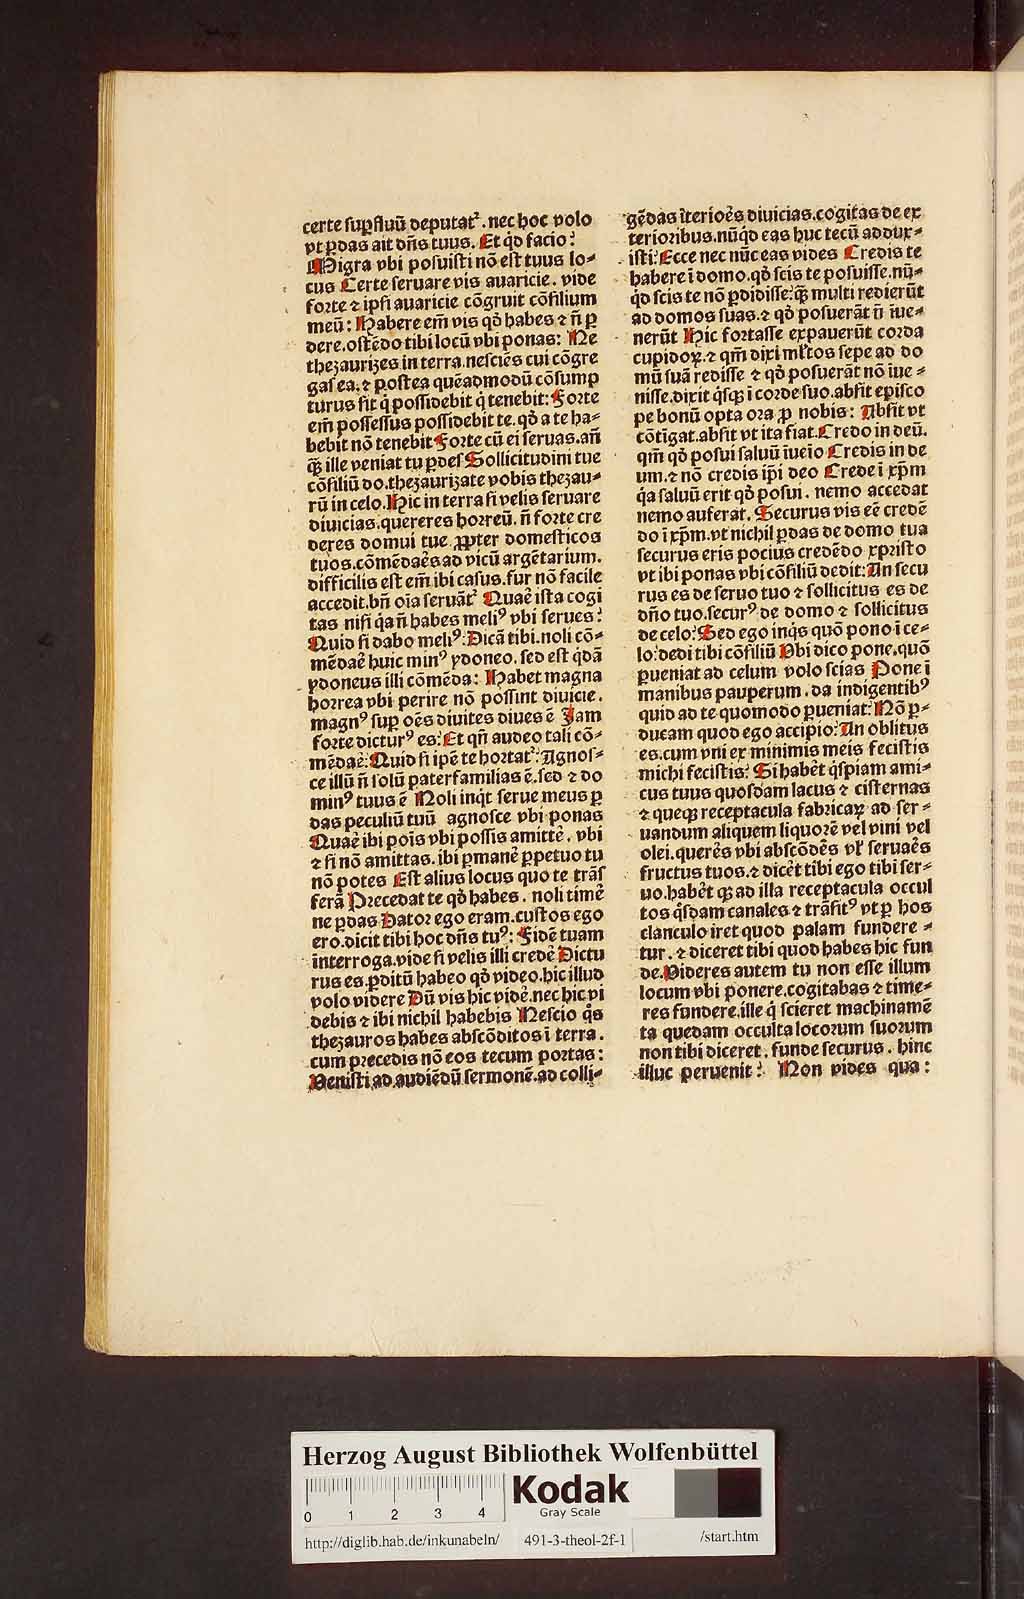 certe supfluū deputat᷒. nec hoc volo
vt ꝑdas ait dn̄s tuus. Et qd̓ facio?
Migra vbi posuisti nō est tuus lo⸗
cus Certe seruare vis auaricie. vide
forte ⁊ ipsi auaricie cōgruit cōsilium
meū: Habere em̄ vis qd̓ habes ⁊ n̄ ꝑ
dere. ostēdo tibi locū vbi ponas: Ne
thezaurizes in terra. nesciēs cui cōgre
gas ea. ⁊ postea quēadmodū cōsump
turus sit q̇ possidebit q̇ tenebit: Forte
em̄ possessus possidebit te. qd̓ a te ha⸗
bebit nō tenebit Forte cū ei seruas. an̄
q̄ꝫ ille veniat tu ꝑdes Sollicitudini tue
cōsiliū do. thezaurizate vobis thezau⸗
rū in celo. Hic in terra si velis seruare
diuicias. quereres horreū. n̄ forte cre
deres domui tue ꝓpter domesticos
tuos. cōmēdaes̓ ad vicū argētarium.
difficilis est em̄ ibi casus. fur nō facile
accedit. bn̄ oīa seruāt᷒ Quae̓ ista cogi
tas nisi q̇a n̄ habes meliꝰ vbi serues?
Quid si dabo meliꝰ: Dicā tibi. noli cō⸗
mēdae̓ huic minꝰ ydoneo. sed est q̇dā
ydoneus illi cōmēda: Habet magna
horrea vbi perire nō possint diuicie.
magnꝰ suꝑ oēs diuites diues ē Jam
forte dicturꝰ es: Et qn̄ audeo tali cō⸗
mēdae̓: Quid si ipē te hortat᷒: Agnos⸗
ce illū n̄ solū paterfamilias ē. sed ⁊ do
minꝰ tuus ē Noli inq̇t serue meus ꝑ
das peculiū tuū agnosce vbi ponas
Quae̓ ibi pōis vbi possis amitte̓. vbi
⁊ si nō amittas. ibi ꝑmane̓ ꝑpetuo tu
nō potes Est alius locus quo te trās
ferā Precedat te qd̓ habes. noli time̓
ne ꝑdas Dator ego eram. custos ego
ero. dicit tibi hoc dn̄s tuꝰ: Fidē tuam
īnterroga. vide si velis illi crede̓ Dictu
rus es. ꝑditū habeo qd̓ video. hic illud
volo videre Dū vis hic vide̓. nec hic vi
debis ⁊ ibi nichil habebis Nescio q̇s
thezauros habes abscōditos ī terra.
cum precedis nō eos tecum portas:
Venisti ad audiēdū sermonē. ad colli⸗
gēdas īterioe̓s diuicias. cogitas de ex
terioribus. nūq̇d eas huc tecū addux⸗
isti: Ecce nec nūc eas vides Credis te
habere ī domo. qd̓ scis te posuisse. nū⸗
q̇d scis te nō ꝑdidisse: q̄ꝫ multi redierūt
ad domos suas. ⁊ qd̓ posuerāt n̄ īue⸗
nerūt Hic fortasse expauerūt corda
cupidoꝝ. ⁊ qm̄ dixi ml̓tos sepe ad do
mū suā redisse ⁊ qd̓ posuerāt nō īue⸗
nisse. dixit q̇sqꝫ ī corde suo. absit episco
pe bonū opta ora ꝓ nobis: Absit vt
cōtigat. absit vt ita fiat. Credo in deū.
qm̄ qd̓ posui saluū īueīo Credis in de
um. ⁊ nō credis ip̄i deo Crede ī xp̄m
q̇a saluū erit qd̓ posui. nemo accedat
nemo auferat. Securus vis eē credē
do ī xp̄m. vt nichil ꝑdas de domo tua
securus eris pocius credēdo xpristo
vt ibi ponas vbi cōsiliū dedit: An secu
rus es de seruo tuo ⁊ sollicitus es de
dn̄o tuo. securꝰ de domo ⁊ sollicitus
de celo: Sed ego inq̇s quō pono ī ce⸗
lo: dedi tibi cōsiliū Vbi dico pone. quō
ꝑueniat ad celum volo scias Pone ī
manibus pauperum. da indigentibꝰ
quid ad te quomodo ꝑueniat: Nō ꝑ⸗
ducam quod ego accipio: An oblitus
es. cum vni ex minimis meis fecistis
michi fecistis: Si habe̓t q̇spiam ami⸗
cus tuus quosdam lacus ⁊ cisternas
⁊ queqꝫ receptacula fabricaꝝ ad ser⸗
uandum aliquem liquorē vel vini vel
olei. quere̓s vbi abscōdēs vl̓ seruae̓s
fructus tuos. ⁊ dice̓t tibi ego tibi ser⸗
uo. habe̓t qꝫ ad illa receptacula occul
tos q̇sdam canales ⁊ trāsitꝰ vt ꝑ hos
clanculo iret quod palam fundere⸗
tur. ⁊ diceret tibi quod habes hic fun
de. Videres autem tu non esse illum
locum vbi ponere. cogitabas ⁊ time⸗
res fundere. ille q̇ sciret machinamē
ta quedam occulta locorum suorum
non tibi diceret. funde securus. hinc
illuc peruenit: Non vides qua:
Herzog August Bibliothek Wolfenbüttel
0 1 2 3 4
Kodak
Gray Scale
http://diglib.hab.de/inkunabeln/ 491-3-theol-2f-1 /start.htm